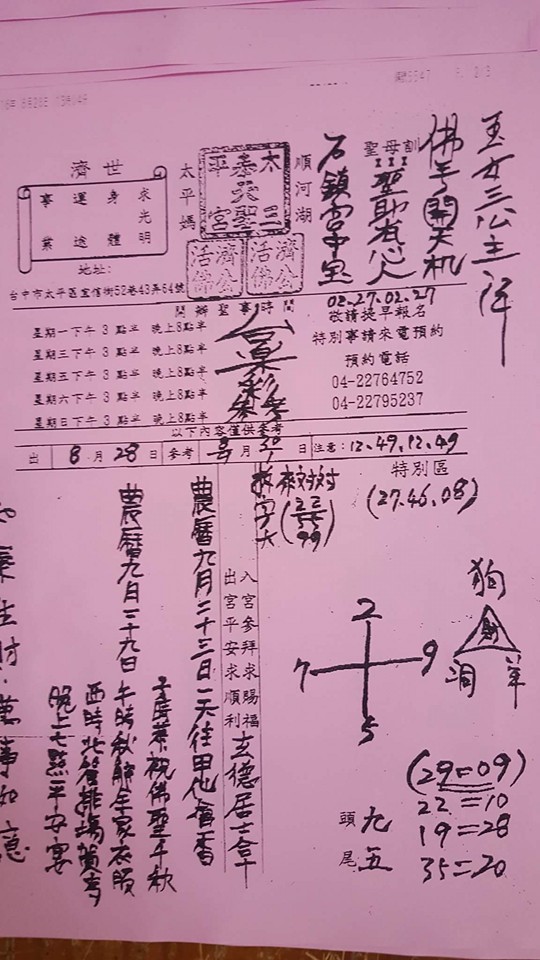 玉女三公主降
佛手開天机
聖母割
III聖助有心人
石鎮宮中宝
順河湖
太平
奉天聖三
宮
太平媽
濟公活佛
濟公活佛
濟世
求光明
身體
運途
事業
地址:
台中市太平區宜信街52巷43弄64號
開辦聖事時間
星期一下午 3 點半 晚上8點半
星期三下午 3 點半 晚上8點半
星期五下午 3 點半 晚上8點半
星期六下午 3 點半 晚上8點半
星期日下午 3 點半 晚上8點半
02.27.02.27
敬請提早報名
特別事請來電預約
預約電話
04-22764752
04-22795237
以下內容僅供參考
出 8 月 28 日 參考 月 30 日 注意: 12.49.12.49
特別區
(27.46.08)
(22
55
99)
入宮參拜求賜福
出宮平安求順利
玄德居士拿
農曆九月二十三日一天往甲仙會香
農曆九月二十九日
子時恭祝佛聖千秋
午時秋解全家衣服
酉時北管排場賀壽
晚上七點平安宴
萬事如意
2
7
9
5
狗
財
洞
羊
(29=09)
22=10
19=28
35=20
頭 九
尾 五